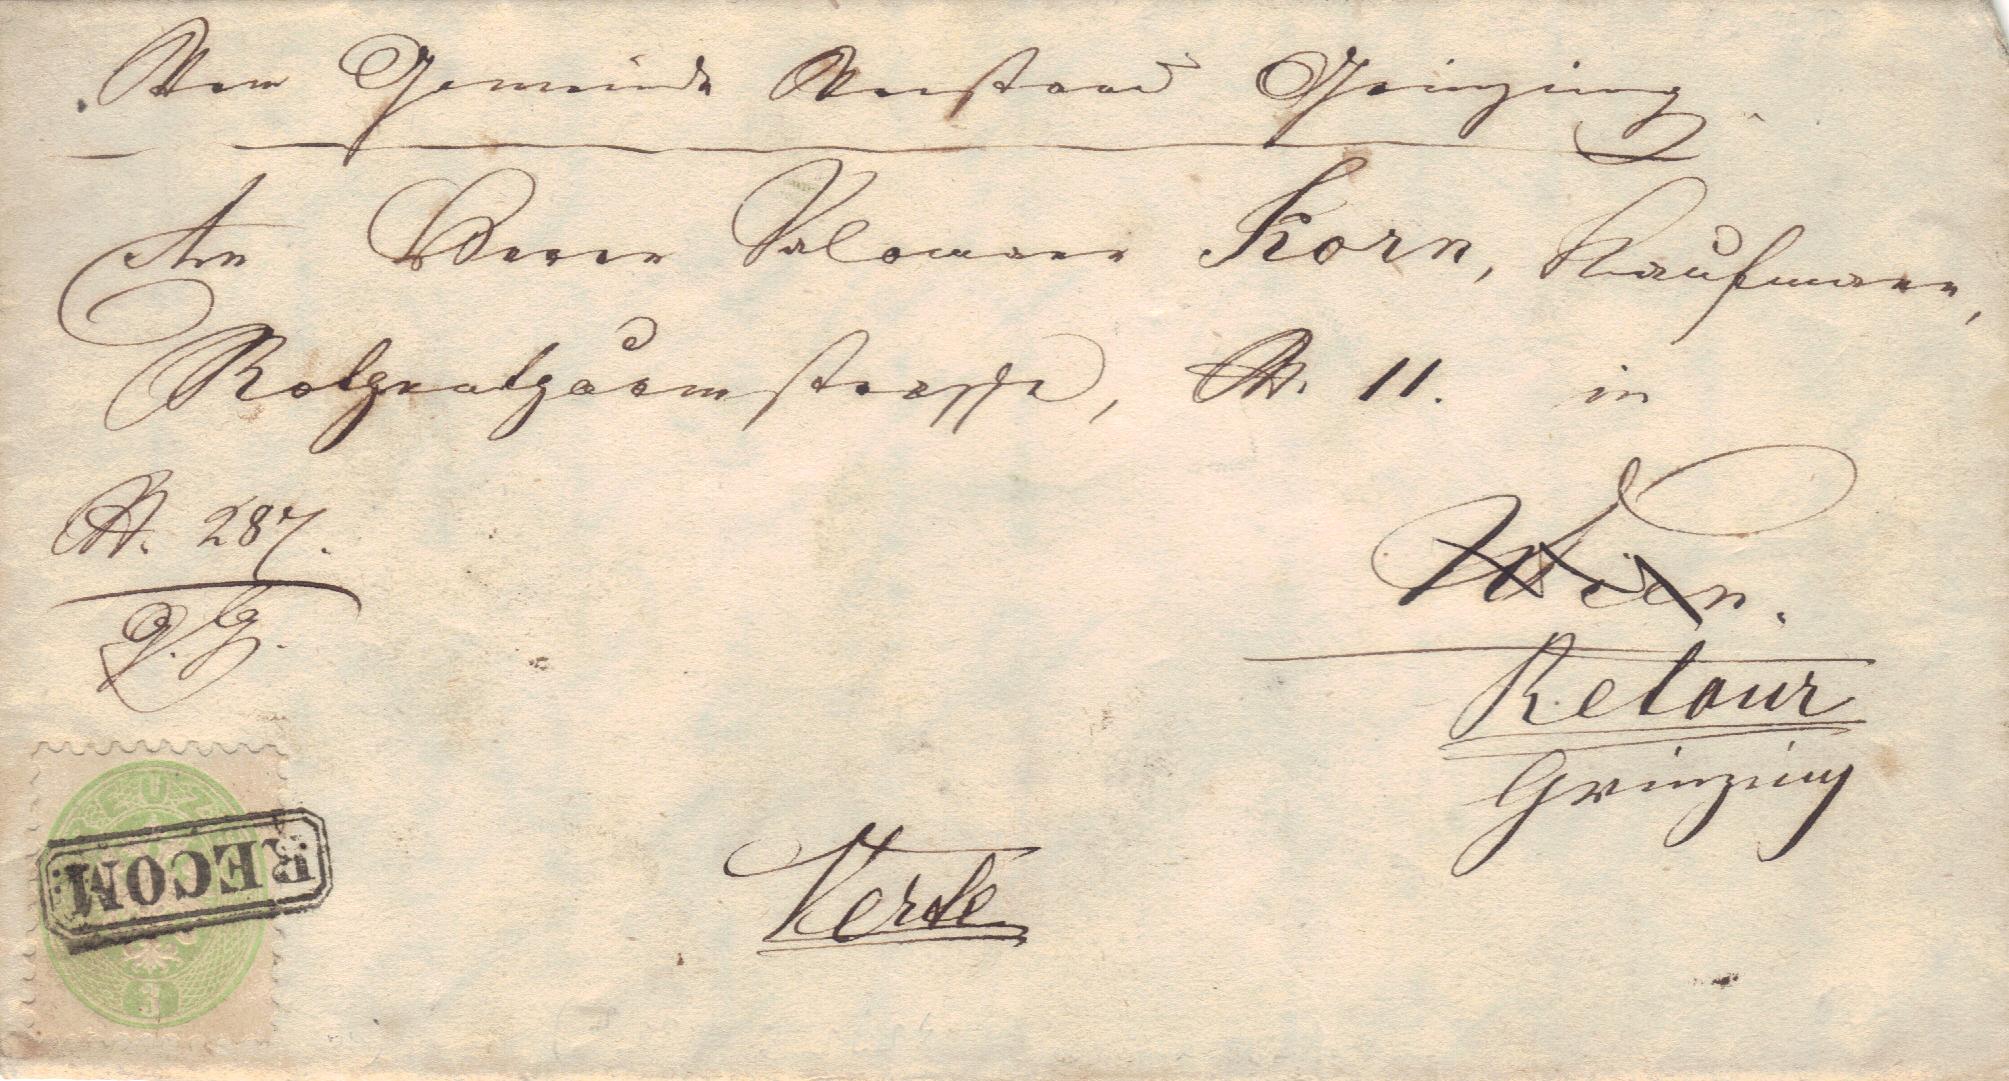 Vom Gemeinde Vorstand Grinzing.
An Herrn Salomon Korn, Kaufmann,
Rothenthurmstrasse, N. 11. in
N. 287.
Wien.
Retour
Grinzing
Verte
RECOM
3